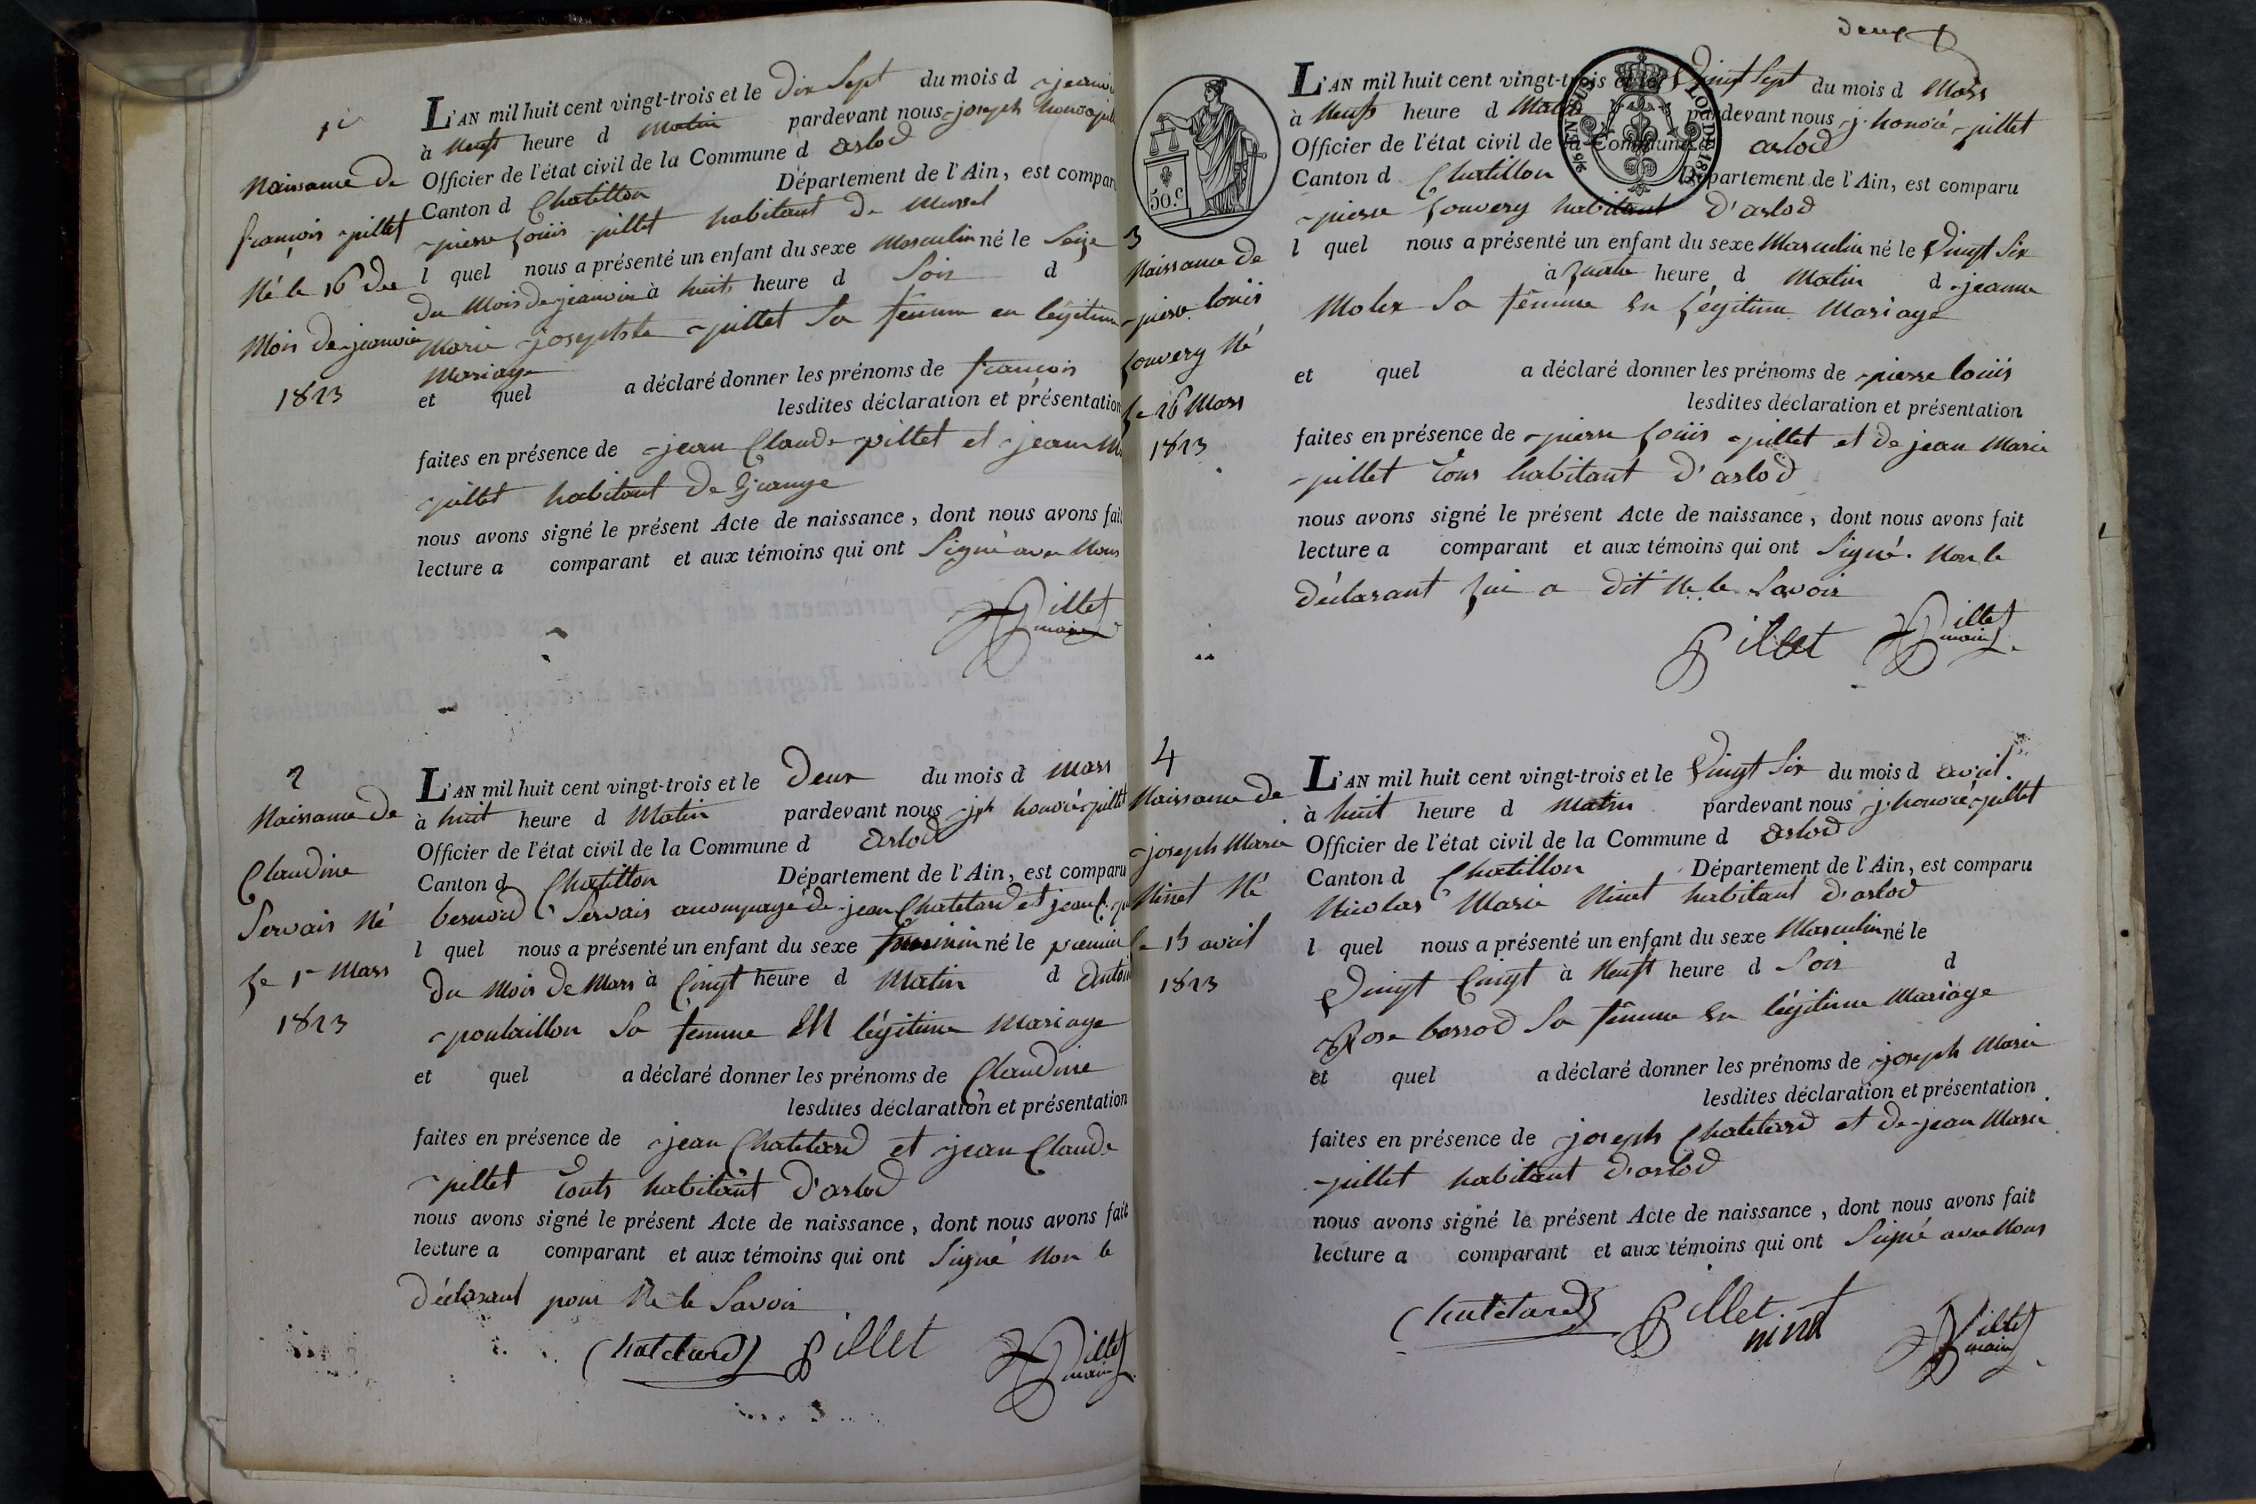 1er
Naissance de
françois pillet
Né le 16 du
Mois de janvier
1823
L'AN mil huit cent vingt-trois et le Dix Sept du mois d janvi
à Neuf heure d Matin pardevant nous joseph honoré pill
Officier de l'état civil de la Commune d arlod
Canton d Chatillon Département de l'Ain, est compar
pierre Louis pillet habitant de Mussel
l quel nous a présenté un enfant du sexe Masculin né le Seize
Du Mois de janvier à huit heure d Soir d
Marie josephte pillet Sa femme en légitime
Mariage
et quel a déclaré donner les prénoms de francois
lesdites déclaration et présentation
faites en présence de jean Claude pillet et jean M
pillet habitant De
nous avons signé le présent Acte de naissance, dont nous avons fait
lecture a comparant et aux témoins qui ont Signé avec Nous
Pillet
maire
2
Naissance De
Claudine
Servais Né
Le 1er Mars
1823
L'AN mil huit cent vingt-trois et le Deux du mois d Mars
à huit heure d Matin pardevant nous jph honoré pillet
Officier de l'état civil de la Commune d Arlod
Canton d Chatillon Département de l'Ain, est comparu
bernard Servais acompagé de jean Chatelard et jean C. pi
l quel nous a présenté un enfant du sexe feminin né le premier
Du Mois De Mars à Cinqt heure d Matin d Antoi
poulaillon Sa femme EN légitime Mariage
et quel a déclaré donner les prénoms de Claudine
lesdites déclaration et présentation
faites en présence de jean Chatelard et jean Claude
pillet touts habitant D'arlod
nous avons signé le présent Acte de naissance, dont nous avons fait
lecture a comparant et aux témoins qui ont Signé Non le
Déclarant pour Ne le Savoir
Chatelard Pillet Pillet
maire
deux
TIMBRE
50.c
LOI DE 18
3
Naissance de
pierre louis
Louvery Né
Le 26 Mars
1823
L'AN mil huit cent vingt-trois et le Vingt Sept du mois d Mars
à Neuf heure d Matin pardevant nous j. honoré pillet
Officier de l'état civil de la Commune d arlod
Canton d Chatillon Département de l'Ain, est comparu
pierre Louvery habitant D'arlod
l quel nous a présenté un enfant du sexe Masculin né le Vingt Six
à quatre heure d Matin d jeanne
Molex Sa femme En Légitime Mariage
et quel a déclaré donner les prénoms de pierre louis
lesdites déclaration et présentation
faites en présence de pierre Louis pillet et de jean Marie
pillet tous habitant D'arlod
nous avons signé le présent Acte de naissance, dont nous avons fait
lecture a comparant et aux témoins qui ont Signé. Non le
Déclarant qui a Dit Ne le Savoir
Pillet Pillet
maire
4
Naissance de
joseph Marie
Ninet Né
Le avril
1823
L'AN mil huit cent vingt-trois et le Vingt Six du mois d avril
à huit heure d Matin pardevant nous j. honoré pillet
Officier de l'état civil de la Commune d arlod
Canton d Chatillon Département de l'Ain, est comparu
Nicolas Marie Ninet habitant D'arlod
l quel nous a présenté un enfant du sexe Masculin né le
Vingt Cinqt à Neuft heure d Soir d
Rose borrod Sa femme En légitime Mariage
et quel a déclaré donner les prénoms de joseph Marie
lesdites déclaration et présentation
faites en présence de joseph Chatelard et De jean Marie
pillet habitant D'arlod
nous avons signé le présent Acte de naissance, dont nous avons fait
lecture a comparant et aux témoins qui ont Signé avec Nous
Chatelard Pillet
ninet
Pillet
maire